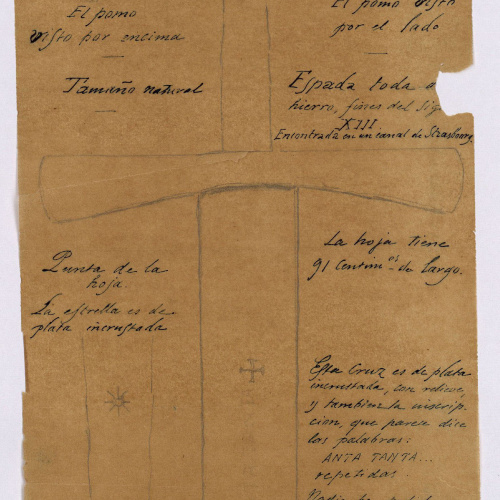 El pomo
visto por encima
Tamaño natural
El pomo visto
por el lado
Espada toda
hierro, fines del
XIII
Encontrada en un canal de Strasbourg.
La hoja tiene
91 Centim.os de largo.
Punta de la
hoja.
La estrella es de
plata incrustada
Esta Cruz es de plata
incrustada, con relieve,
y tambien la inscrip-
cion, que parece dice
las palabras:
ANTA TANTA...
repetidas